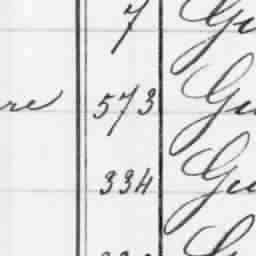 7 Gu
re 573 Gu
334 Gu